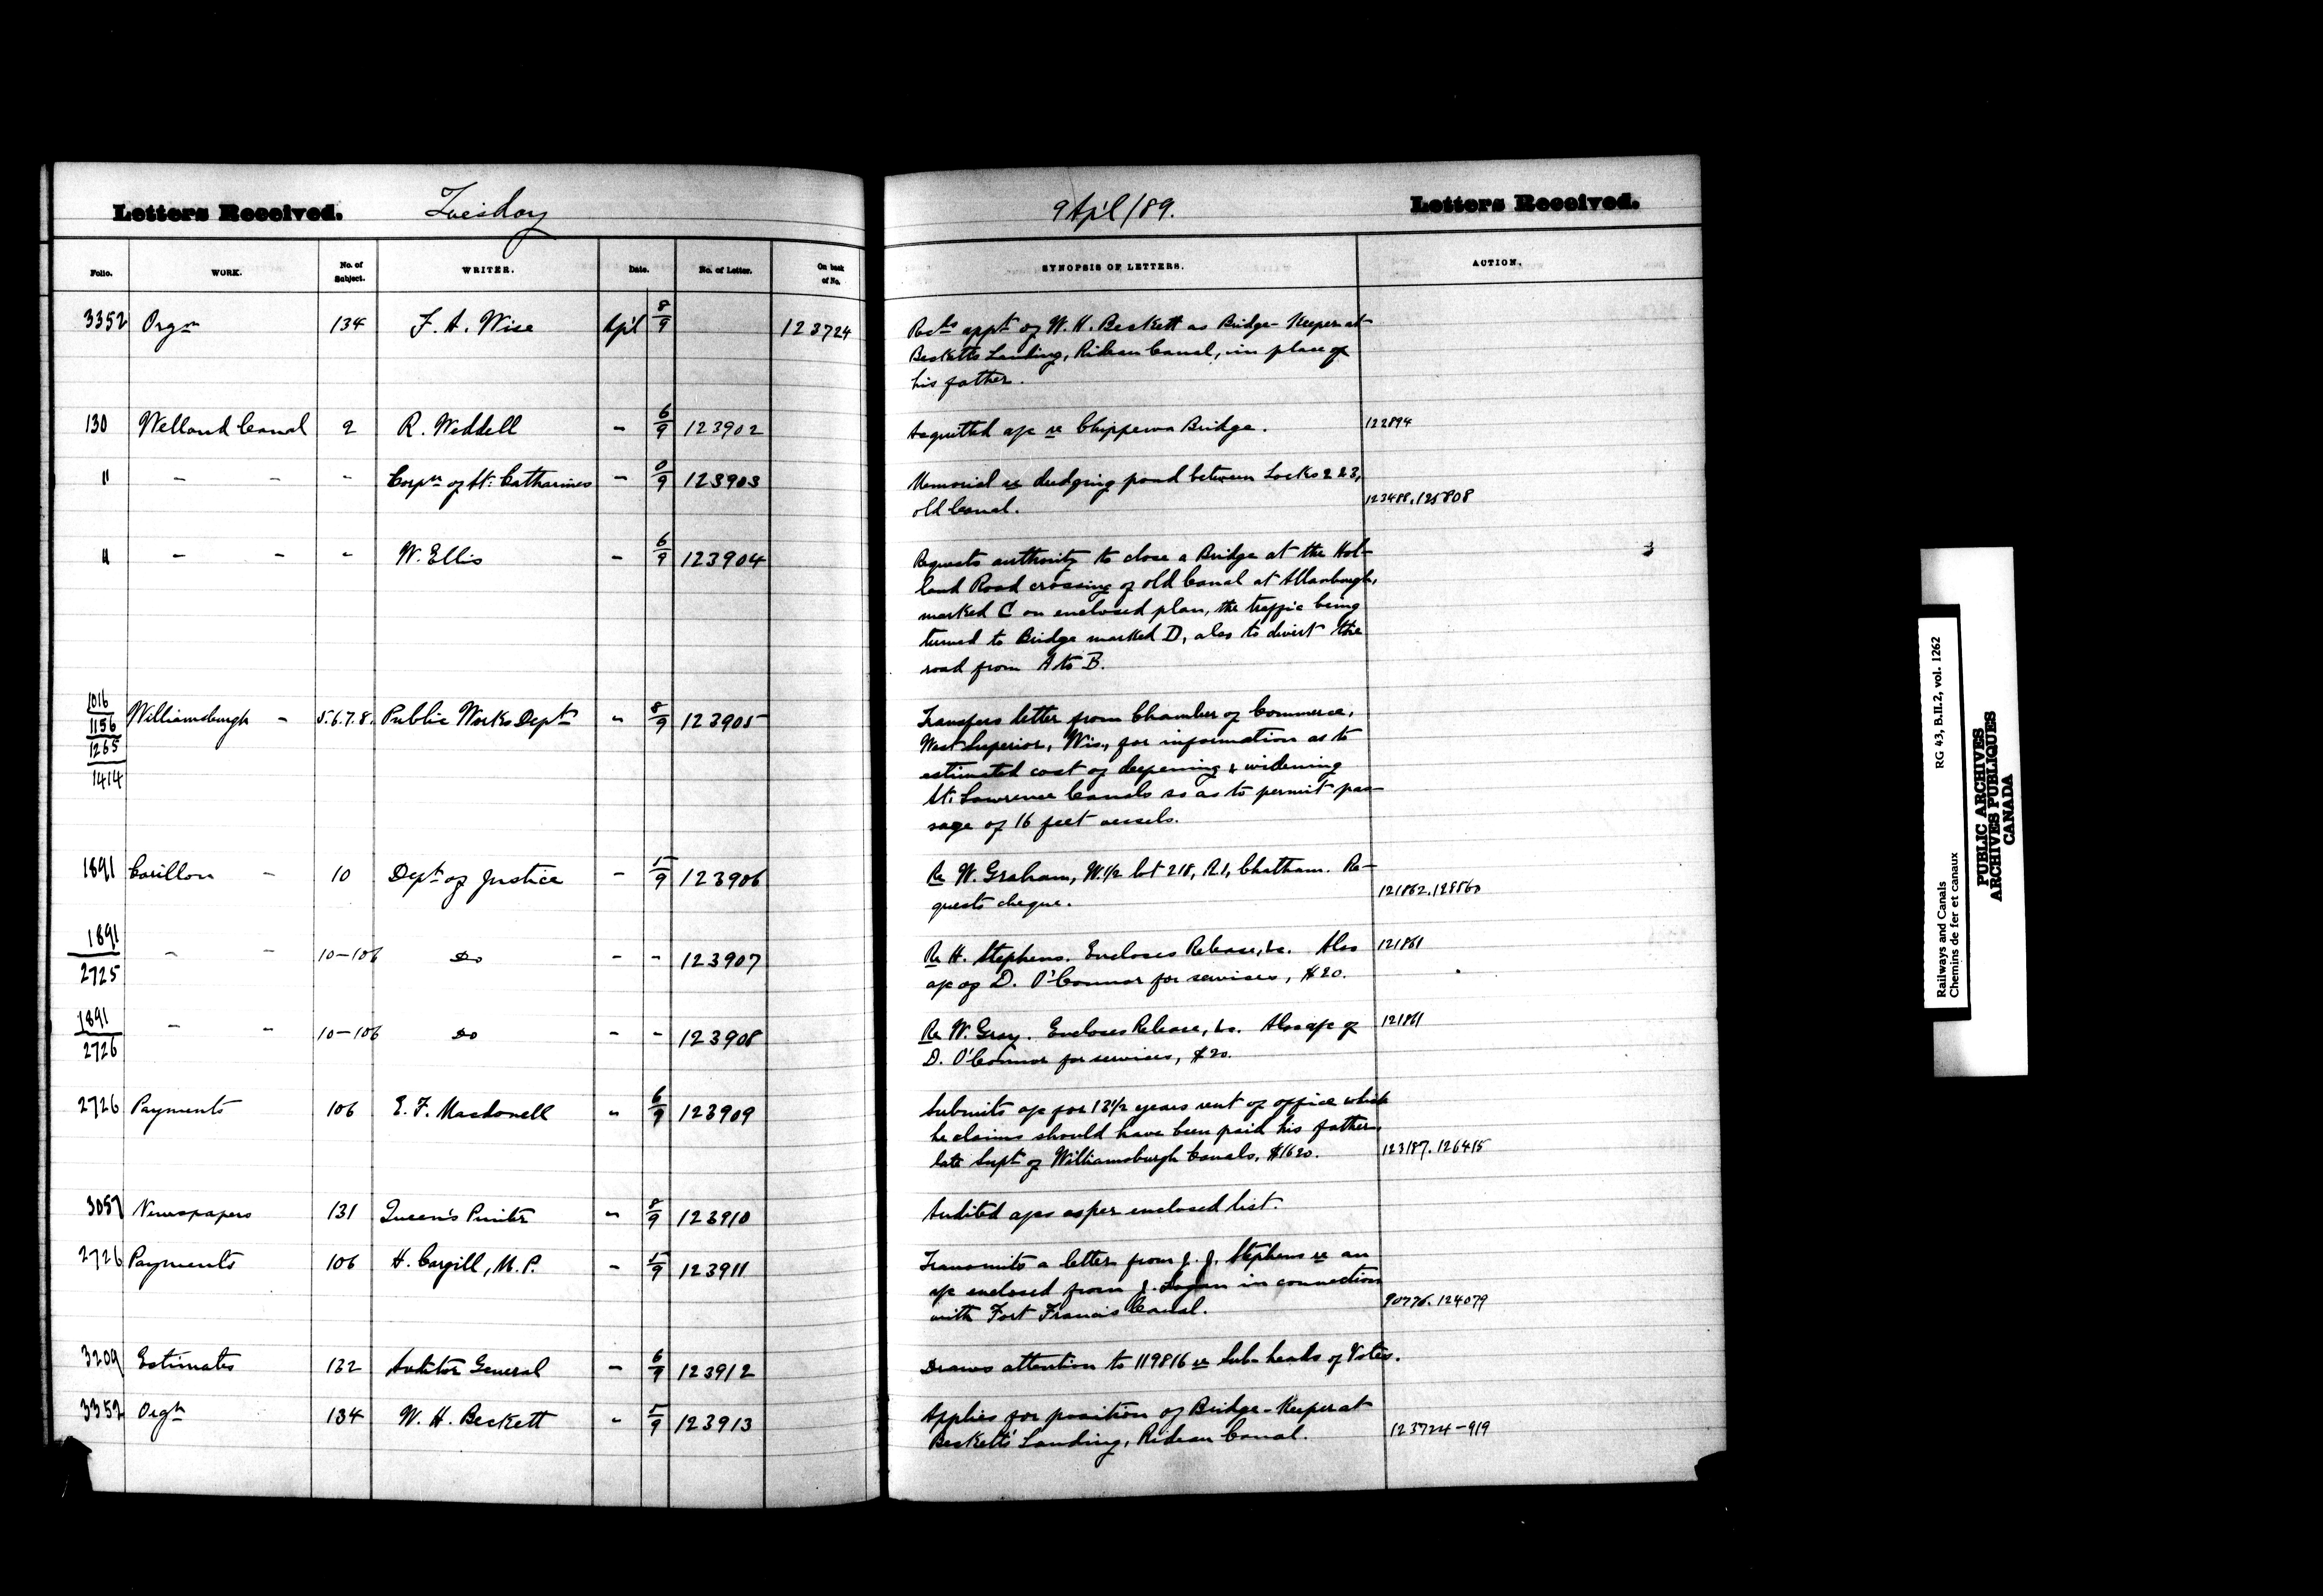 Letters Received. Tuesday 9 Apl/89. Letters Received.
Folio. WORK. No. of Subject. WRITER. Date. No. of Letter. On back of No. SYNOPSIS OF LETTERS. ACTION.
3352 Orgn 134 F. A. Wise Apl 8/9 123724 Recds appt of W. H. Beckett as Bridge-Keeper at
Becketts Landing, Rideau Canal, in place of
his father.
130 Welland Canal 2 R. Weddell - 6/9 123902 Acquitted a/c re Chippewa Bridge. 122894
" - - - Corpn of St. Catharines - 123903 Memorial re dredging pond between Locks 2 & 3,
old Canal. 123488.125808
" - - - W. Ellis - 6/9 123904 Requests authority to close a Bridge at the Hol-
land Road crossing of old Canal at Allanburgh,
marked C on enclosed plan, the traffic being
turned to Bridge marked D, also to divert the
road from A to B.
1016 1156 1265 1414 Williamsburgh - 5.6.7.8. Public Works Dept - 8/9 123905 Transfers letter from Chamber of Commerce,
West Superior, Wis., for information as to
estimated cost of deepening & widening
St. Lawrence Canals so as to permit pas-
sage of 16 feet vessels.
1891 Carillon - 10 Dept of Justice - 5/9 123906 Re W. Graham, W.1/2 lot 218, R.1, Chatham. Re-
quests cheque. 121862.
1891 2725 - - 10-106 Do - - 123907 Re H. Stephens. Encloses Release, &c. Also 121861
a/c of D. O'Connor for services, $20.
1891 2726 - - 10-106 Do - - 123908 Re W. Gray. Encloses Release, &c. Also a/c of 121861
D. O'Connor for services, $20.
2726 Payments 106 E. F. Macdonell " 6/9 123909 Submits a/c for 13 1/2 years rent of office which
he claims should have been paid his father,
late Supt of Williamsburgh Canals, $1620. 123187.126415
3057 Newspapers 131 Queen's Printer " 8/9 123910 Audited a/cs as per enclosed list.
2726 Payments 106 H. Cargill, M.P. - 5/9 123911 Transmits a letter from J. J. Stephens re an
a/c enclosed from J. Logan in connection
with Fort Francis Canal. 90776.124079
3209 Estimates 132 Auditor General - 6/9 123912 Draws attention to 119816 re Sub-heads of Votes.
3352 Orgn 134 W. H. Beckett " 5/9 123913 Applies for position of Bridge-Keeper at
Becketts' Landing, Rideau Canal. 123724-919
Railways and Canals RG 43, B.II.2, vol. 1262
Chemins de fer et canaux
PUBLIC ARCHIVES
ARCHIVES PUBLIQUES
CANADA